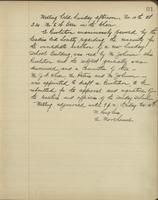 61
Meeting held Sunday afternoon Nov. 10th at
3.30. Mr. in the Chair
A Resolution unanimously passed by the
Ladies Aid Society regarding the necessity for
the immediate erection of a new Sunday
School Building was read by Mr. Johnson. This
Resolution and the subject generally was
discussed and a Committee of
Mr. and Mr. Johnson
was appointed to draft a Resolution to be
submitted for the approval and signature of
the teachers and officers of the Sunday School
Meeting adjourned until 7 p.m. Friday Nov 15th